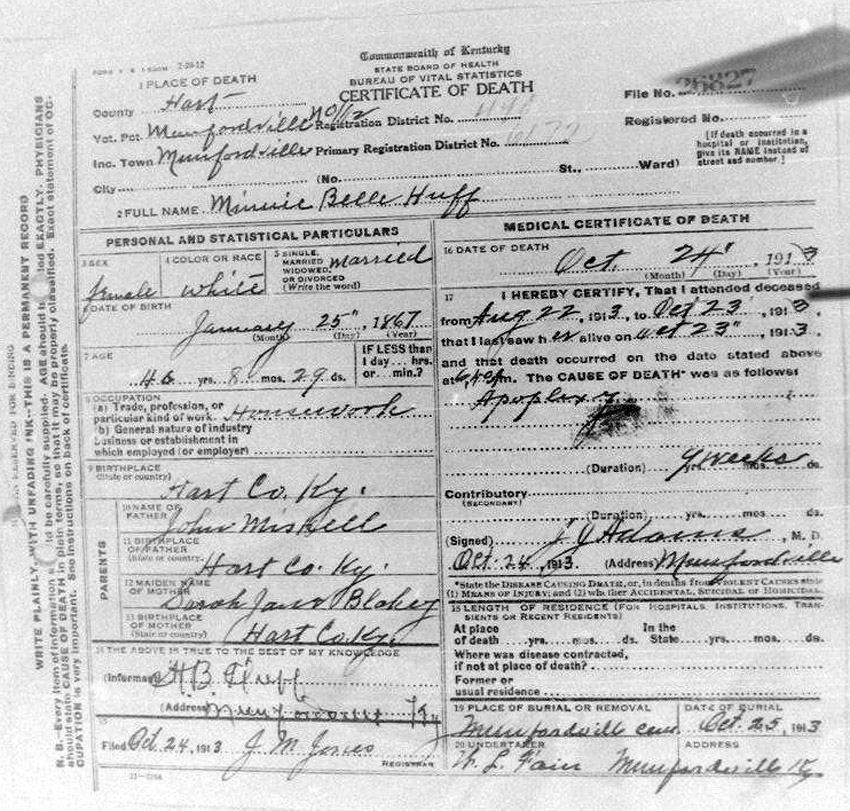 FORM V. S. 7-29-12
Commonwealth of Kentucky
STATE BOARD OF HEALTH
BUREAU OF VITAL STATISTICS
CERTIFICATE OF DEATH
1 PLACE OF DEATH
County Hart
Vot. Pct Munfordville No 1/2 Registration District No.
Inc. Town Munfordville Primary Registration District No.
City (No. St., Ward)
File No. 26827
Registered No.
[If death occurred in a hospital or institution, give its NAME instead of street and number.]
2 FULL NAME Minnie Belle Huff
PERSONAL AND STATISTICAL PARTICULARS
3 SEX female
4 COLOR OR RACE White
5 SINGLE, MARRIED WIDOWED, OR DIVORCED (Write the word) Married
6 DATE OF BIRTH
January 25", 1867
(Month) (Day) (Year)
7 AGE
46 yrs. 8 mos. 29 ds.
IF LESS than 1 day... hrs. or... min.?
8 OCCUPATION
(a) Trade, profession, or particular kind of work. Housework
(b) General nature of industry business or establishment in which employed (or employer)
9 BIRTHPLACE
(State or country)
Hart Co. Ky.
PARENTS
10 NAME OF FATHER John Miskell
11 BIRTHPLACE OF FATHER (State or country.) Hart Co. Ky.
12 MAIDEN NAME OF MOTHER Sarah Jane Blakey
13 BIRTHPLACE OF MOTHER (State or country) Hart Co Ky.
14 THE ABOVE IS TRUE TO THE BEST OF MY KNOWLEDGE
(Informant) H.B. Huff
(Address) Munfordville Ky
15
Filed Oct. 24, 1913 J. M. Jones
REGISTRAR
11-3184
MEDICAL CERTIFICATE OF DEATH
16 DATE OF DEATH
Oct. 24", 1913
(Month) (Day) (Year)
17 I HEREBY CERTIFY, That I attended deceased
from Aug 22, 1913, to Oct 23", 1913,
that I last saw her alive on Oct 23", 1913,
and that death occurred on the date stated above
at m. The CAUSE OF DEATH* was as follows
Apoplexy
(Duration) yrs. mos. ds. 9 weeks
Contributory
(SECONDARY)
(Duration) yrs. mos. ds.
(Signed) J J Adams, M. D.
Oct. 24, 1913. (Address) Munfordville
*State the DISEASE CAUSING DEATH, or, in deaths from VIOLENT CAUSES state (1) MEANS OF INJURY; and (2) whether ACCIDENTAL, SUICIDAL OR HOMICIDAL.
18 LENGTH OF RESIDENCE (FOR HOSPITALS, INSTITUTIONS, TRANSIENTS OR RECENT RESIDENTS)
At place of death yrs. mos. ds. In the State yrs. mos. ds.
Where was disease contracted,
if not at place of death?
Former or
usual residence
19 PLACE OF BURIAL OR REMOVAL Munfordville cem
DATE OF BURIAL Oct. 25, 1913
20 UNDERTAKER W. L. Fair
ADDRESS Munfordville Ky
MARGIN RESERVED FOR BINDING
WRITE PLAINLY, WITH UNFADING INK--THIS IS A PERMANENT RECORD
N. B.--Every item of information should be carefully supplied. AGE should be stated EXACTLY. PHYSICIANS
should state CAUSE OF DEATH in plain terms, so that it may be properly classified. Exact statement of OC-
CUPATION is very important. See instructions on back of certificate.